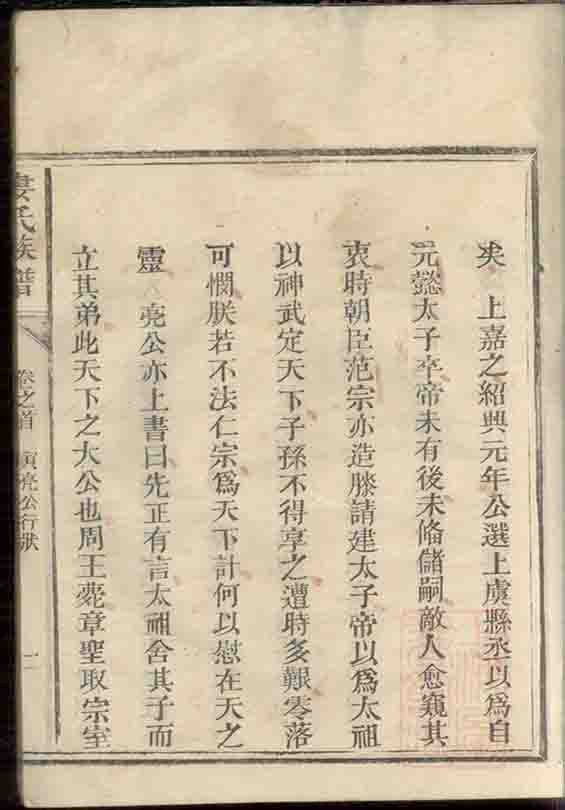 夾　上嘉之紹興元年公選上虞縣丞以爲自
元懿太子卒帝未有後未脩儲嗣敵人愈窺其
衷時朝臣范宗亦造膝請建太子帝以爲太祖
以神武定天下子孫不得享之遭時多艱零落
可憫朕若不法仁宗爲天下計何以慰在天之
靈　亮公亦上書曰先正有言太祖舍其子而
立其弟此天下之大公也周王薨章聖取宗室
婁氏族譜
卷之首
寅亮公行狀
二